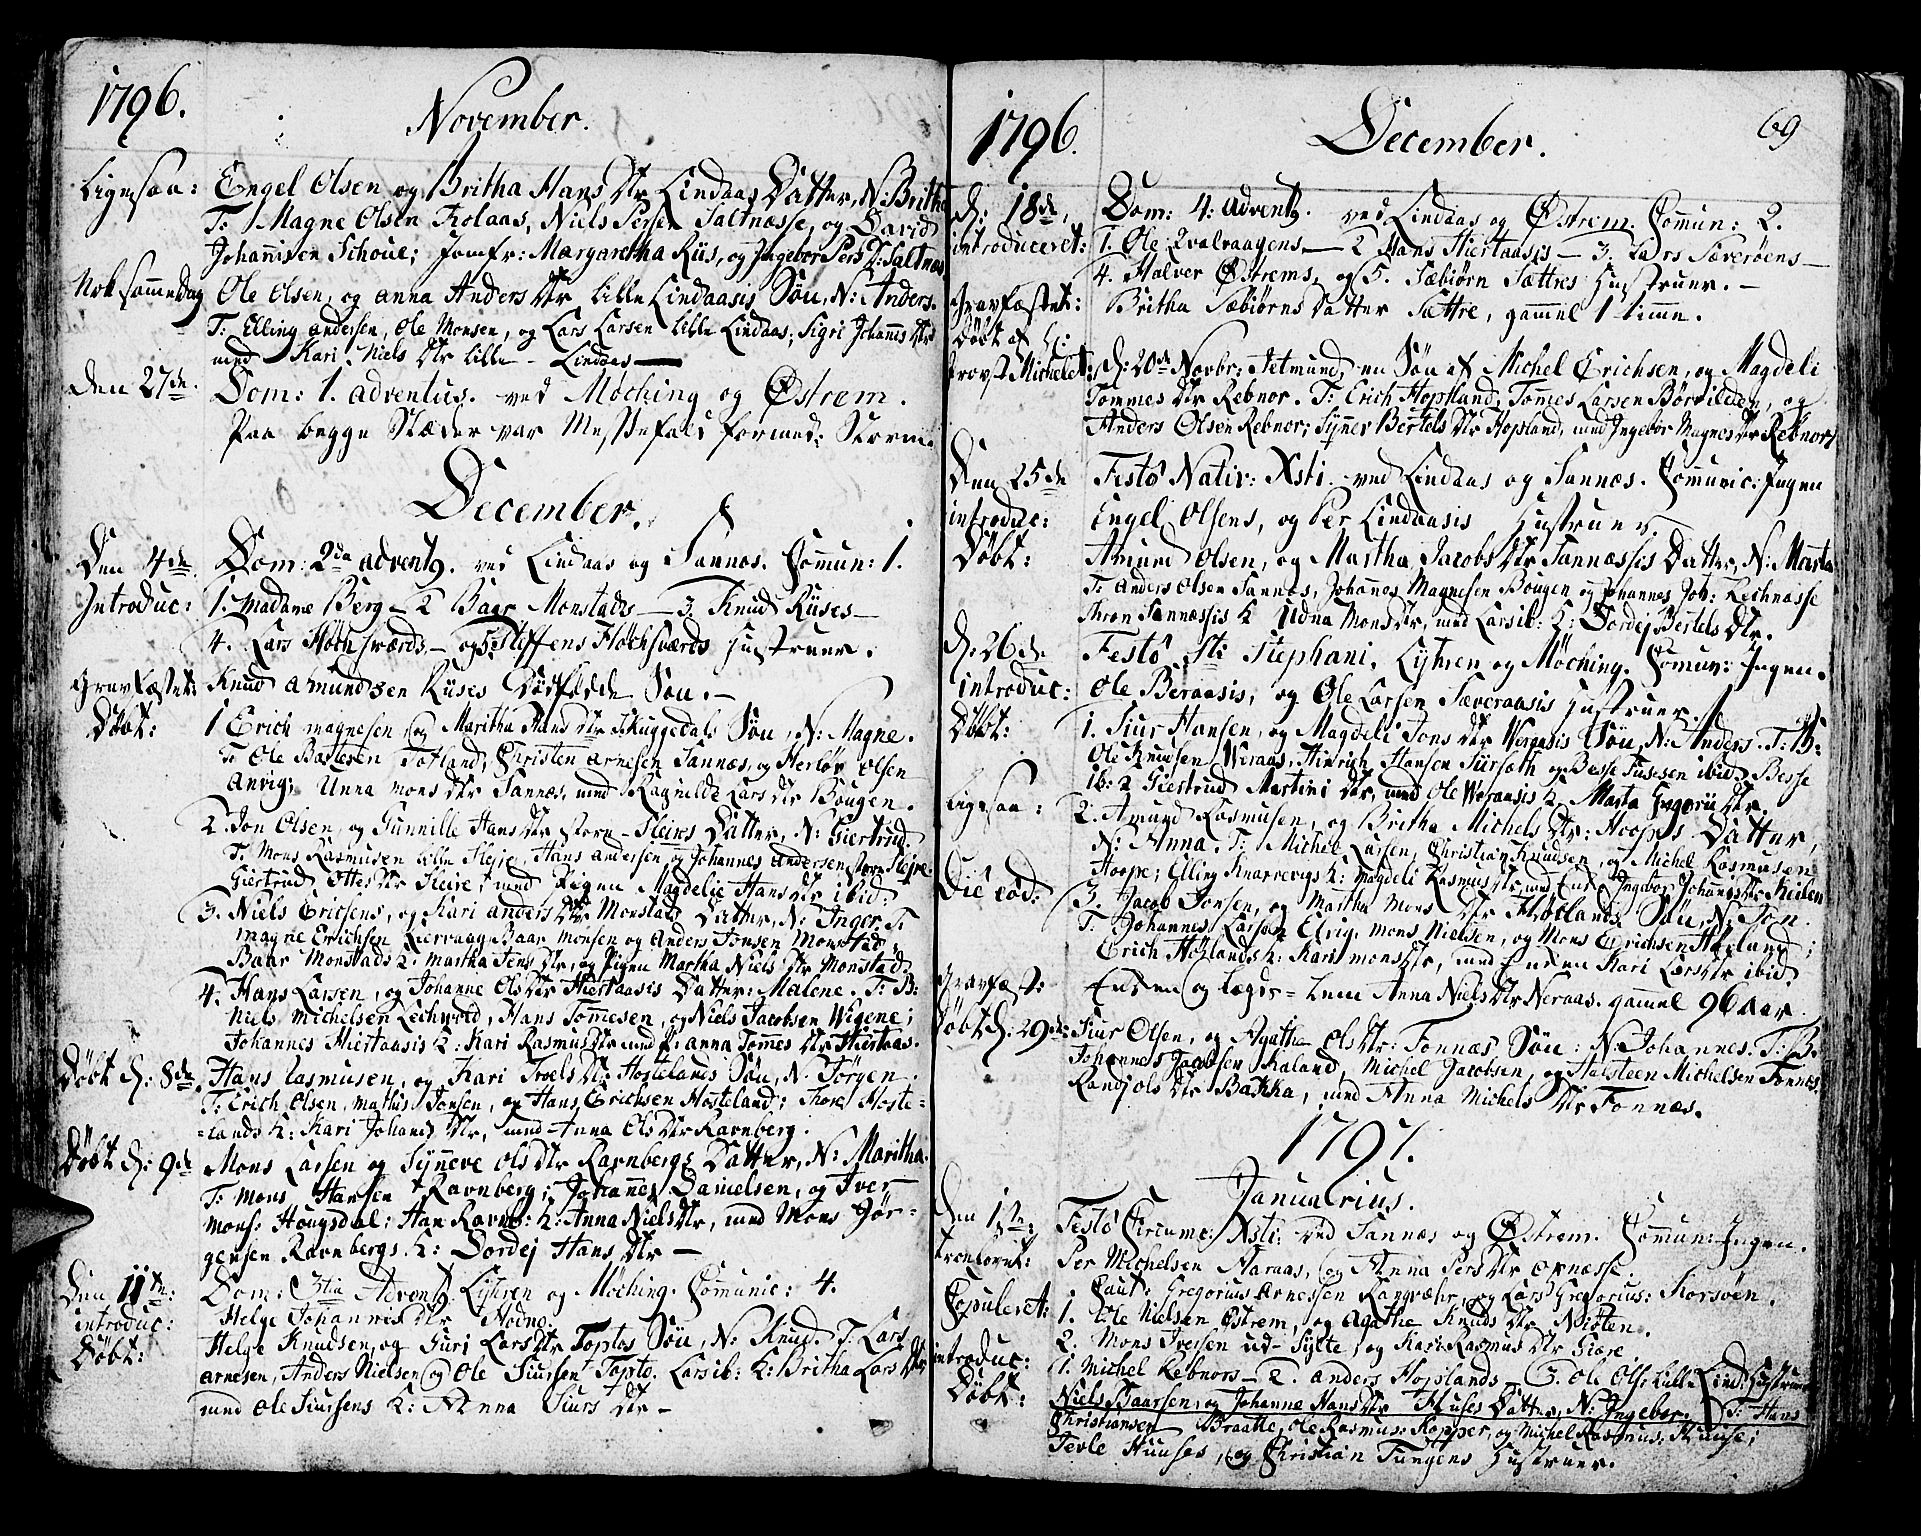 1796.
November.
Ligesaa: Engel Olsen og Britha Hans Dtr Lindaas Datter, N: Britha
T: Magne Olsen Kolaas, Niels Persen Saltnæsse, og David
Johannisen Schoue; Jomfr: Margaretha Riis, og Ingebor Pers D: Saltnæs
Nok samme dag Ole Olsen, og Anna Anders Dtr Lille Lindaasis Søn, N: Anders.
T: Elling Andersen, Ole Monsen, og Lars Larsen Lille Lindaas; Sigri Johannes Dtr
med Kari Niels Dtr Lille-Lindaas
Den 27de. Dom: 1. Adventus. ved Møching og Østrem.
Paa begge Stæder var Messefald formed: Storm.
December.
Den 4de. Dom: 2da Advent9. ved Lindaas og Sannæs. Com̄un: 1.
Introduc: 1. Madame Berg — 2 Baar Monstads — 3. Knud Riises —
4. Lars Høchsværds — og 5. Steffens Høchsværds Hustruer.
Gravfæstet: Knud Amundsen Riises Dødfødde Søn. —
Døbt: 1 Erich Magnesen og Maritha Hans Dtr Skuggedals Søn, N: Magne.
T: Ole Bastesen Totland, Christen Arnesen Sannæs, og Herlov Olsen
Anvig; Unna Mons Dtr Sannæs, med Ragnilde Lars Dtr Bougen.
2. Jon Olsen, og Gunnille Hans Dtr Store-Sleires Datter, N: Giertrud.
T: Mons Rasmusen Lille Sleire, Hans Andersen og Johannes Andersen Store Sleire:
Giertrud Ottes Dtr Sleire, med Pigen Magdelie Hans Dtr ibid:
3. Niels Ericsens, og Kari Anders Dtr Monstads Datter, N: Inger. T:
Magne Erichsen Kierraag, Baar Monsen og Anders Jonsen Monstad,
Baar Monstads K: Martha Jens Dtr, og Pigen Martha Niels Dtr Monstad.
4. Hans Larsen, og Johanne Ols Dtr Hiertaasis Datter: Malene. T: B:
Niels Michelsen Lechvold, Hans Tommesen, og Niels Jacobsen Wigene;
Johannes Hiertaasis K: Kari Rasmus Dtr med P: Anna Tommes Dtr Hiertaas.
Døbt d: 8de. Hans Rasmusen, og Kari Troels Dtr Hostelands Søn, N: Jørgen.
T: Erich Olsen, Mathis Jonsen, og Hans Erichsen Hosteland; Thore Hoste-
-lands K: Kari Johans Dtr, med Anna Ols Dtr Ravnberg.
Døbt d: 9de Mons Larsen og Synneve Ols Dtr Ravnbergs Datter, N: Maritha.
T: Mons Hansen Ravnberg; Johannes Danielsen, og Iver
Mons: Hougsdal; Han Ravnb: K: Anna Niels Dtr, med Mons Jør-
gensen Ravnbergs K: Dordej Hans Dtr —
Den 11te: Dom: 3tia Advent9. Lyhren og Møching. Com̄unic: 4.
introduc: Helge Johannes Dtr Hodne.
Døbt: Helge Knudsen, og Guri Lars Dtr Toptes Søn, N: Knud. T: Lars
Arnesen, Anders Nielsen og Ole Siursen Topte. Lars ib: K: Britha Lars Dtr
med Ole Siursens K: Anna Siurs Dtr —
1796.
December.
69
d: 18de, Dom: 4: Advent9. ved Lindaas og Østrem. Com̄un: 2.
introduceret: 1. Ole Qvalvaagens — 2 Hans Hiertaasis — 3. Lars Sæverøens —
4. Halver Østrems, og 5. Sæbiørn Sættres Hustruer. —
Gravfæstet: Britha Sæbiørns Datter Sættre, gammel 1 time.
Døbt af H:
Provst Michelet: d: 20de Novbr: Jetmund, en Søn af Michel Erichsen, og Magdeli
Tommes Dtr Rebnor. T: Erich Hopsland, Tomes Larsen Børvilden, og
Anders Olsen Rebnor; Synner Bertels Dtr Hopsland, med Ingebor Magnes Dtr Rebnor
Den 25de Festo Nativ: Xsti. ved Lindaas og Sannæs. Com̄unic: Ingen
introduc: Engel Olsens, og Per Lindaasis Hustruer
Døbt: Amund Olsen, og Martha Jacobs Dtr Sannæssis Datter, N: Marta
T: Anders Olsen Sannæs, Johannes Magnesen Bougen og Johannes Joh: Lechnæsse
Thron Sannæssis K Udna Mons Dtr, med Lars ib: K: Dordej Bertels Dtr.
d: 26de Festo Sti Stephani. Lyhren og Møching. Com̄un: Ingen.
introduc: Ole Beraasis, og Ole Larsen Sæveraasis Hustruer.
Døbt: 1. Siur Hansen, og Magdeli Jons Dtr Weraasis Søn, N: Anders. T: B:
Ole Knudsen Weraas, Hinrich Hansen Sursæth og Besse Jussen ibid. Besse
ib: K Giertrud Martini Dtr, med Ole Weraasis K Marta Gregorii Dtr.
Ligesaa: 2. Amund Rasmusen, og Britha Michels Dtr: Hoopes Datter,
N: Anna. T: Michel Larsen, Christian Knudsen, og Michel Rasmusen
Hoope; Elling Knarrevigs K: Magdeli Rasmus Dtr med Enk: Ingebor Johans Dtr Keilen
Die eod: 3. Jacob Jonsen, og Martha Mons Dtr Høtlands Søn, N: Jon.
T: Johannes Larsen Elvig. Mons Nielsen, og Mons Erichsen Høtland;
Erich Høtlands K: Kari Mons Dtr, med Enken Kari Lars Dtr ibid.
Gravfæst: Enken og Lægds-Lem Anna Niels Dtr Neraas. gammel 96 aar.
Døbt d. 29de: Siur Olsen, og Agathe Ols Dtr: Fonnæs Søn: N: Johannes. T: B:
Johannes Jacobsen Kaland, Michel Jacobsen, og Halsteen Michelsen Fonnæs
Randj Ols Dtr Bakka, med Anna Michels Dtr Fonnæs.
1797.
Januarius.
Den 1ste: Festo Circumc: Xsti. ved Sannæs og Østrem. Com̄un: Ingen.
Trolovet: Per Michelsen Aaraas, og Anna Pers Dtr Ornæsse.
Caut: Gregorius Arnessen Rangvæhr, og Lars Gregorius: Korsøen.
Copuleret: 1. Ole Nielsen Østrem, og Agathe Knuds Dtr Niøten.
2. Mons Iversen ud-Sylte, og Kari Rasmus Dtr Giære
introduc: 1. Michel Rebnors — 2. Anders Hoplands — 3. Ole Ols: Lille Lind: Hustruer
Døbt: Niels Baarsen, og Johanne Hans Dtr Huses Datter, N: Ingebor. T: Hans
Christiansen Braatte, Ole Rasmus: Kopper, og Michel Rasmus: Huuse;
Terle Huuses, og Christian Tungens Hustruer.